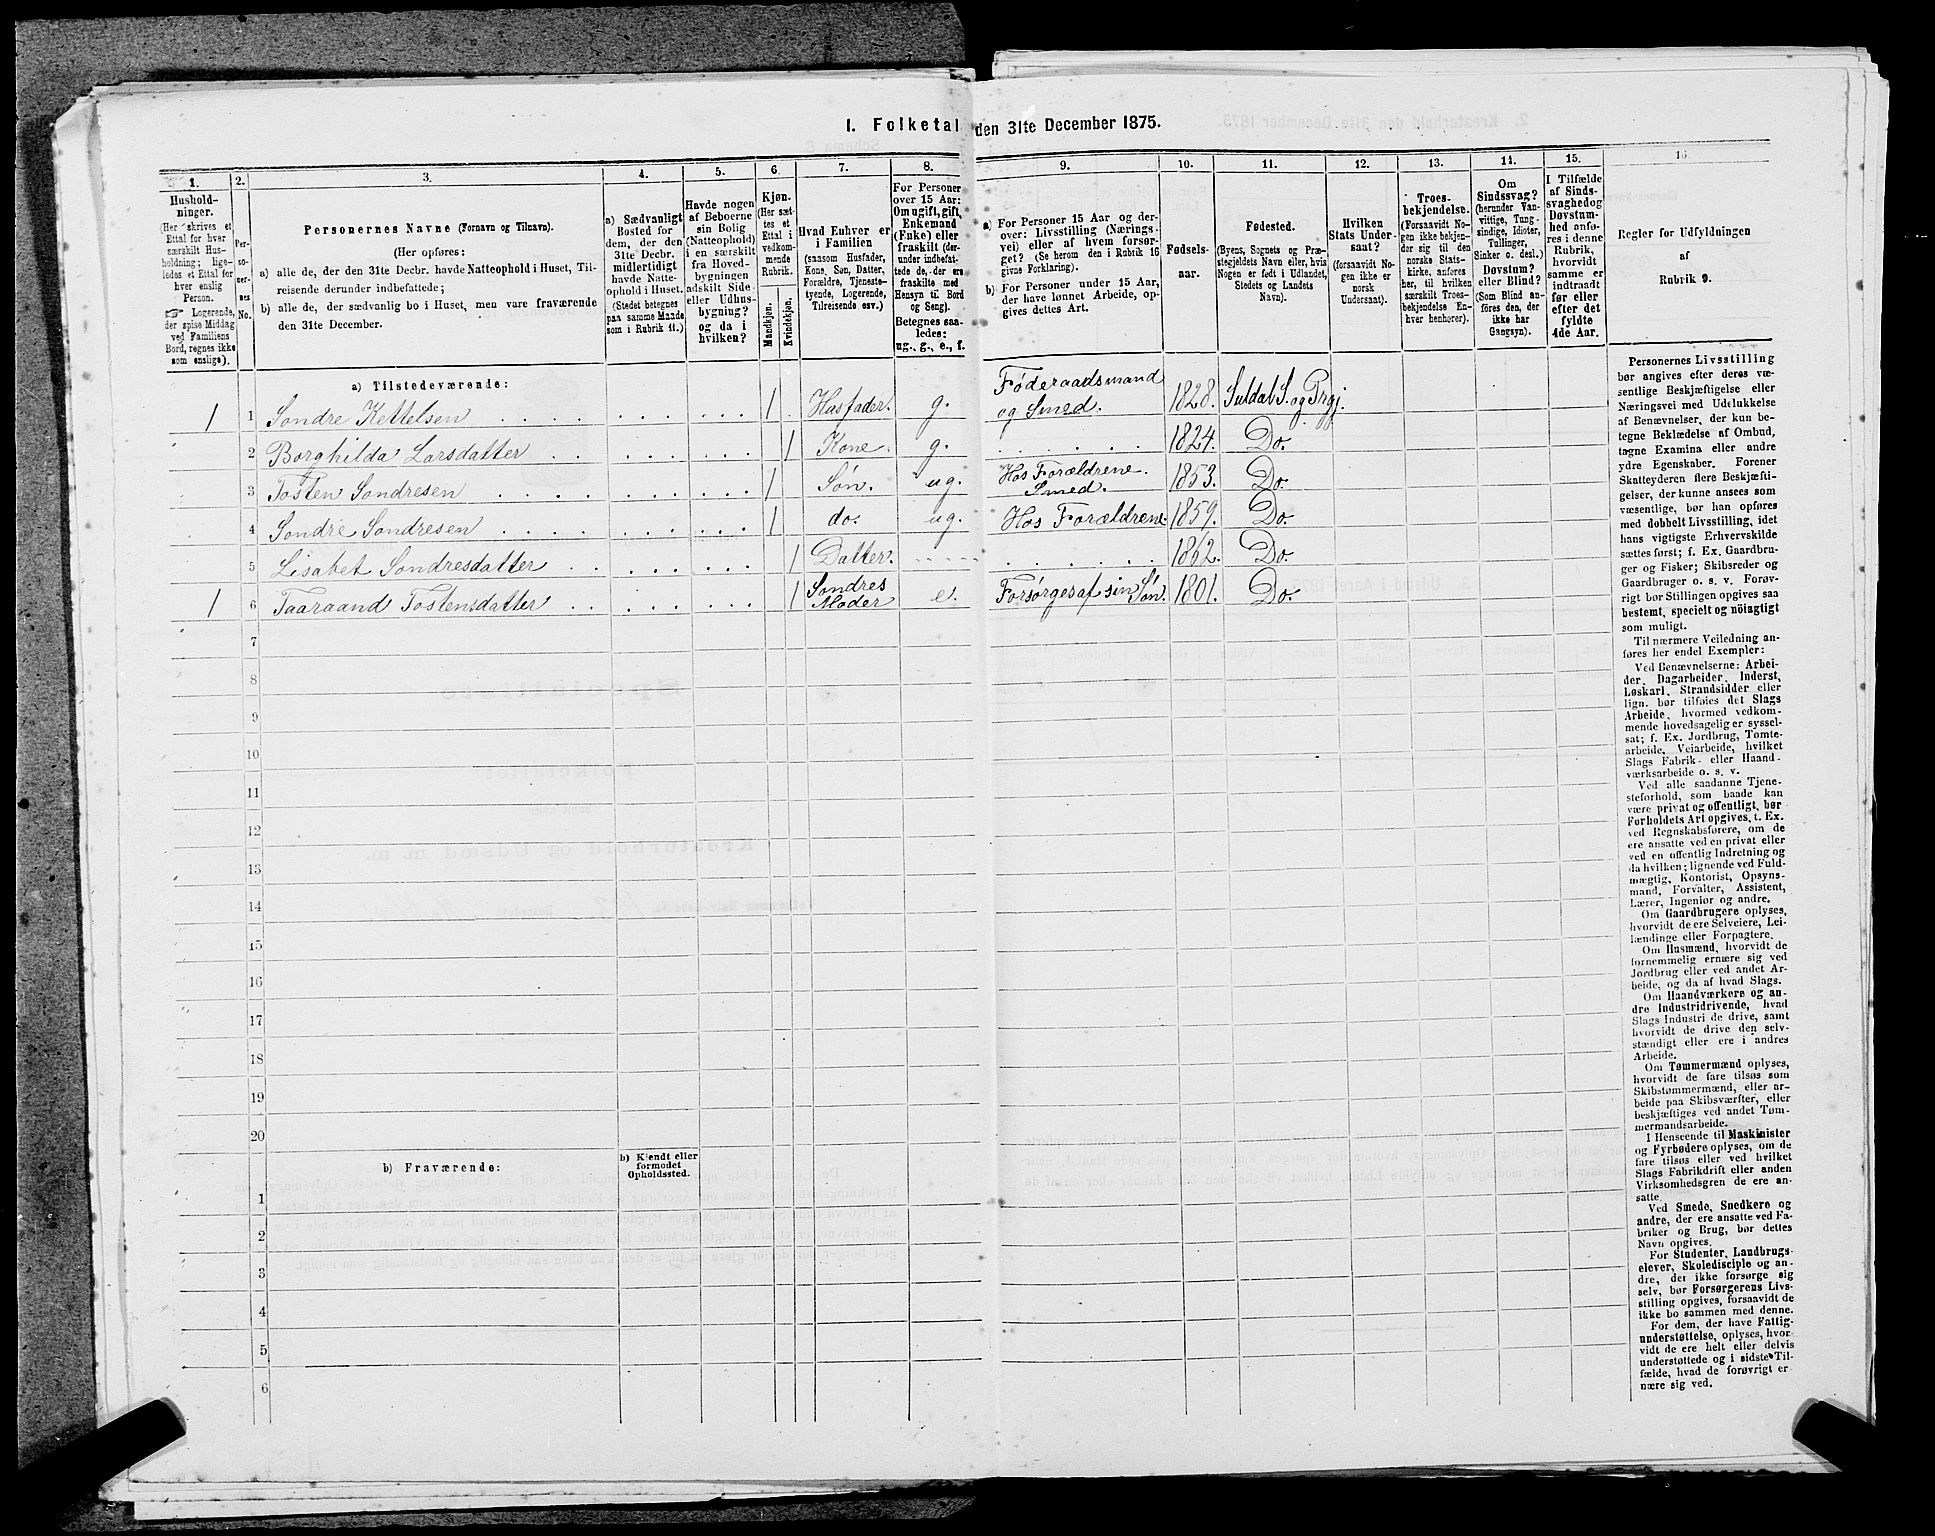 I. Folketal den 31te December 1875.
1. 2. 3. 4. 5. 6. 7. 8. 9. 10. 11. 12. 13. 14. 15. 16.
Hushold-
ninger.
(Her skrives et
Ettal for hver
særskilt Hus-
holdning; lige-
ledes et Ettal for
hver enslig
Person.
☞ Logerende,
der spise Middag
ved Familiens
Bord, regnes ikke
som enslige).
Per-
so-
ner-
nes
No.
Personernes Navne (Fornavn og Tilnavn).
(Her opføres:
a) alle de, der den 31te Decbr. havde Natteophold i Huset, Til-
reisende derunder indbefattede;
b) alle de, der sædvanlig bo i Huset, men vare fraværende
den 31te December.
a) Sædvanligt
Bosted for
dem, der den
31te Decbr.
midlertidigt
havde Natte-
ophold i Huset.
(Stedet betegnes
paa samme Maade
som i Rubrik 11.)
Havde nogen
af Beboerne
sin Bolig
(Natteophold)
i en særskilt
fra Hoved-
bygningen
adskilt Side-
eller Udhus-
bygning?
og da i
hvilken?
Kjøn.
(Her sæt-
tes et
Ettal i
vedkom-
mende
Rubrik.
Mandkjøn.
Kvindekjøn.
Hvad Enhver er
i Familien
(saasom Husfader,
Kone, Søn, Datter,
Forældre, Tjeneste-
tyende, Logerende,
Tilreisende osv.)
For Personer
over 15 Aar:
Om ugift, gift,
Enkemand
(Enke) eller
fraskilt (der-
under indbefat-
tede de, der ere
fraskilte med
Hensyn til Bord
og Seng).
Betegnes saa-
ledes:
ug., g., e., f.
a) For Personer 15 Aar og der-
over: Livsstilling (Nærings-
vei) eller af hvem forsør-
get? (Se herom den i Rubrik 16
givne Forklaring).
b) For Personer under 15 Aar,
der have lønnet Arbeide, op-
gives dettes Art.
Fødsels-
aar.
Fødested.
(Byens, Sognets og Præ-
stegjeldets Navn eller, hvis
Nogen er født i Udlandet,
Stedets og Landets
Navn).
Hvilken
Stats Under-
saat?
(forsaavidt No-
gen ikke er
norsk
Undersaat).
Troes-
bekjendelse.
(Forsaavidt No-
gen ikke bekjen-
der sig til den
norske Stats-
kirke, anføres
her, til hvilken
særskilt Troes-
bekjendelse En-
hver henhører).
Om
Sindssvag?
(herunder Van-
vittige, Tung-
sindige, Idioter,
Tullinger,
Sinker o. desl.)
Døvstum?
eller Blind?
(Som Blind an-
føres den, der
ikke har
Gangsyn).
I Tilfælde
af Sinds-
svaghed og
Døvstum-
hed anfø-
res i denne
Rubrik,
hvorvidt
samme er
indtraadt
før eller
efter det
fyldte
4de Aar.
Regler for Udfyldningen
af
Rubrik 9.
a) Tilstedeværende:
1 1 Sondre Kettelsen 1 Husfader. g. Føderaadsmand og Smed. 1828. Suldal S. og Prgj.
2 Borghilda Larsdatter 1 Kone. g. 1824. Do.
3 Tosten Sondresen 1 Søn. ug. Hos Forældrene. Smed. 1853. Do.
4 Sondre Sondresen 1 do. ug. Hos Forældrene. 1859. Do.
5 Lisabet Sondresdatter 1 Datter. 1862. Do.
1 6 Taaraand Tostensdatter 1 Sondres Moder e. Forsørges af sin Søn. 1801. Do.
7
8
9
10
11
12
13
14
15
16
17
18
19
20
b) Fraværende:
b) Kjendt eller
formodet
Opholdssted.
1
2
3
4
5
6
Personernes Livsstilling
bør angives efter deres væ-
sentlige Beskjæftigelse eller
Næringsvei med Udelukkelse
af Benævnelser, der kun be-
tegne Beklædelse af Ombud,
tagne Examina eller andre
ydre Egenskaber. Forener
Skatteyderen flere Beskjæfti-
gelser, der kunne ansees som
væsentlige, bør han opføres
med dobbelt Livsstilling, idet
hans vigtigste Erhvervskilde
sættes først; f. Ex. Gaardbru-
ger og Fisker; Skibsreder og
Gaardbruger o. s. v. Forøv-
rigt bør Stillingen opgives saa
bestemt, specielt og nöiagtigt
som muligt.
Til nærmere Veiledning an-
føres her endel Exempler:
Ved Benævnelserne: Arbei-
der, Dagarbeider, Inderst,
Løskarl, Strandsidder eller
lign. bør tilføies det Slags
Arbeide, hvormed vedkom-
mende hovedsagelig er syssel-
sat; f. Ex. Jordbrug, Tomte-
arbeide, Veiarbeide, hvilket
Slags Fabrik- eller Haand-
værksarbeide o. s. v.
Ved alle saadanne Tjene-
steforhold, som baade kan
være privat og offentligt, bør
Forholdets Art opgives, t. Ex.
ved Regnskabsførere, om de
ere ansatte ved en privat eller
ved en offentlig Indretning og
da hvilken; lignende ved Fuld-
mægtig, Kontorist, Opsyns-
mand, Forvalter, Assistent,
Lærer, Ingeniør og andre.
Om Gaardbrugere oplyses,
hvorvidt de ere Selveiere, Lei-
lændinge eller Forpagtere.
Om Husmænd, hvorvidt de
fornemmelig ernære sig ved
Jordbrug eller ved andet Ar-
beide, og da af hvad Slags.
Om Haandværkere og an-
dre Industridrivende, hvad
Slags Industri de drive, samt
hvorvidt de drive den selv-
stændigt eller ere i andres
Arbeide.
Om Tømmermænd oplyses,
hvorvidt de fare tilsøs som
Skibstømmermænd, eller ar-
beide paa Skibsværfter, eller
beskjæftiges ved andet Tøm-
mermandsarbeide.
I Henseende til Maskinister
og Fyrbødere oplyses, om de
fare tilsøs eller ved hvilket
Slags Fabrikdrift eller anden
Virksomhedsgren de ere an-
satte.
Ved Smede, Snedkere og
andre, der ere ansatte ved Fa-
briker og Brug, bør dettes
Navn opgives.
For Studenter, Landbrugs-
elever, Skoledisciple og an-
dre, der ikke forsørge sig
selv, bør Forsørgerens Livs-
stilling opgives, forsaavidt de
ikke bo sammen med denne.
For dem, der have Fattig-
understøttelse, oplyses, hvor-
vidt de ere helt eller delvis
understøttede og i sidste Til-
fælde, hvad de forøvrigt er-
nære sig ved.